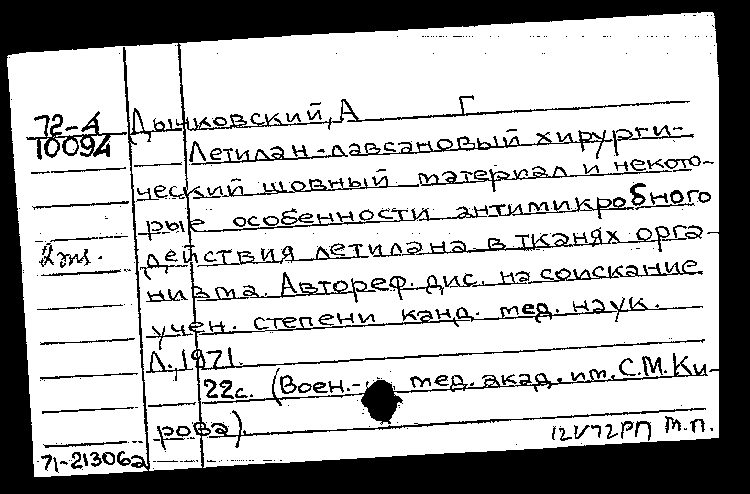 72-А
10094
Дынковский, А Г
Летилан-лавсановый хирурги-
ческий шовный материал и некото-
рые особенности антимикробного
2 экз. действия летилана в тканях орга-
низма. Автореф. дис. на соискание
учен. степени канд. мед. наук.
Л., 1971.
22с. (Воен.- мед. акад. им. С.М. Ки-
рова).
71-21306а
12V72РП м.п.